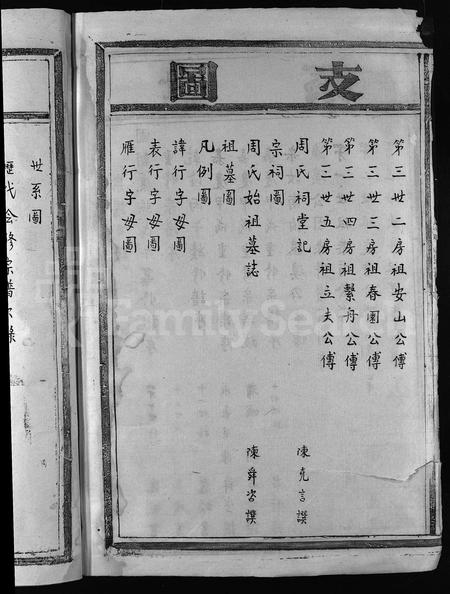 支圖
第三世二房祖安山公傳
第三世三房祖春園公傳
第三世四房祖繫舟公傳
第三世五房祖立夫公傳
周氏祠堂記 陳克言譔
宗祠圖
周氏始祖墓誌 陳舜咨譔
祖墓圖
凡例圖
諱行字母圖
表行字母圖
雁行字母圖
世系圖
歷代會修宗譜次錄
FamilySearch